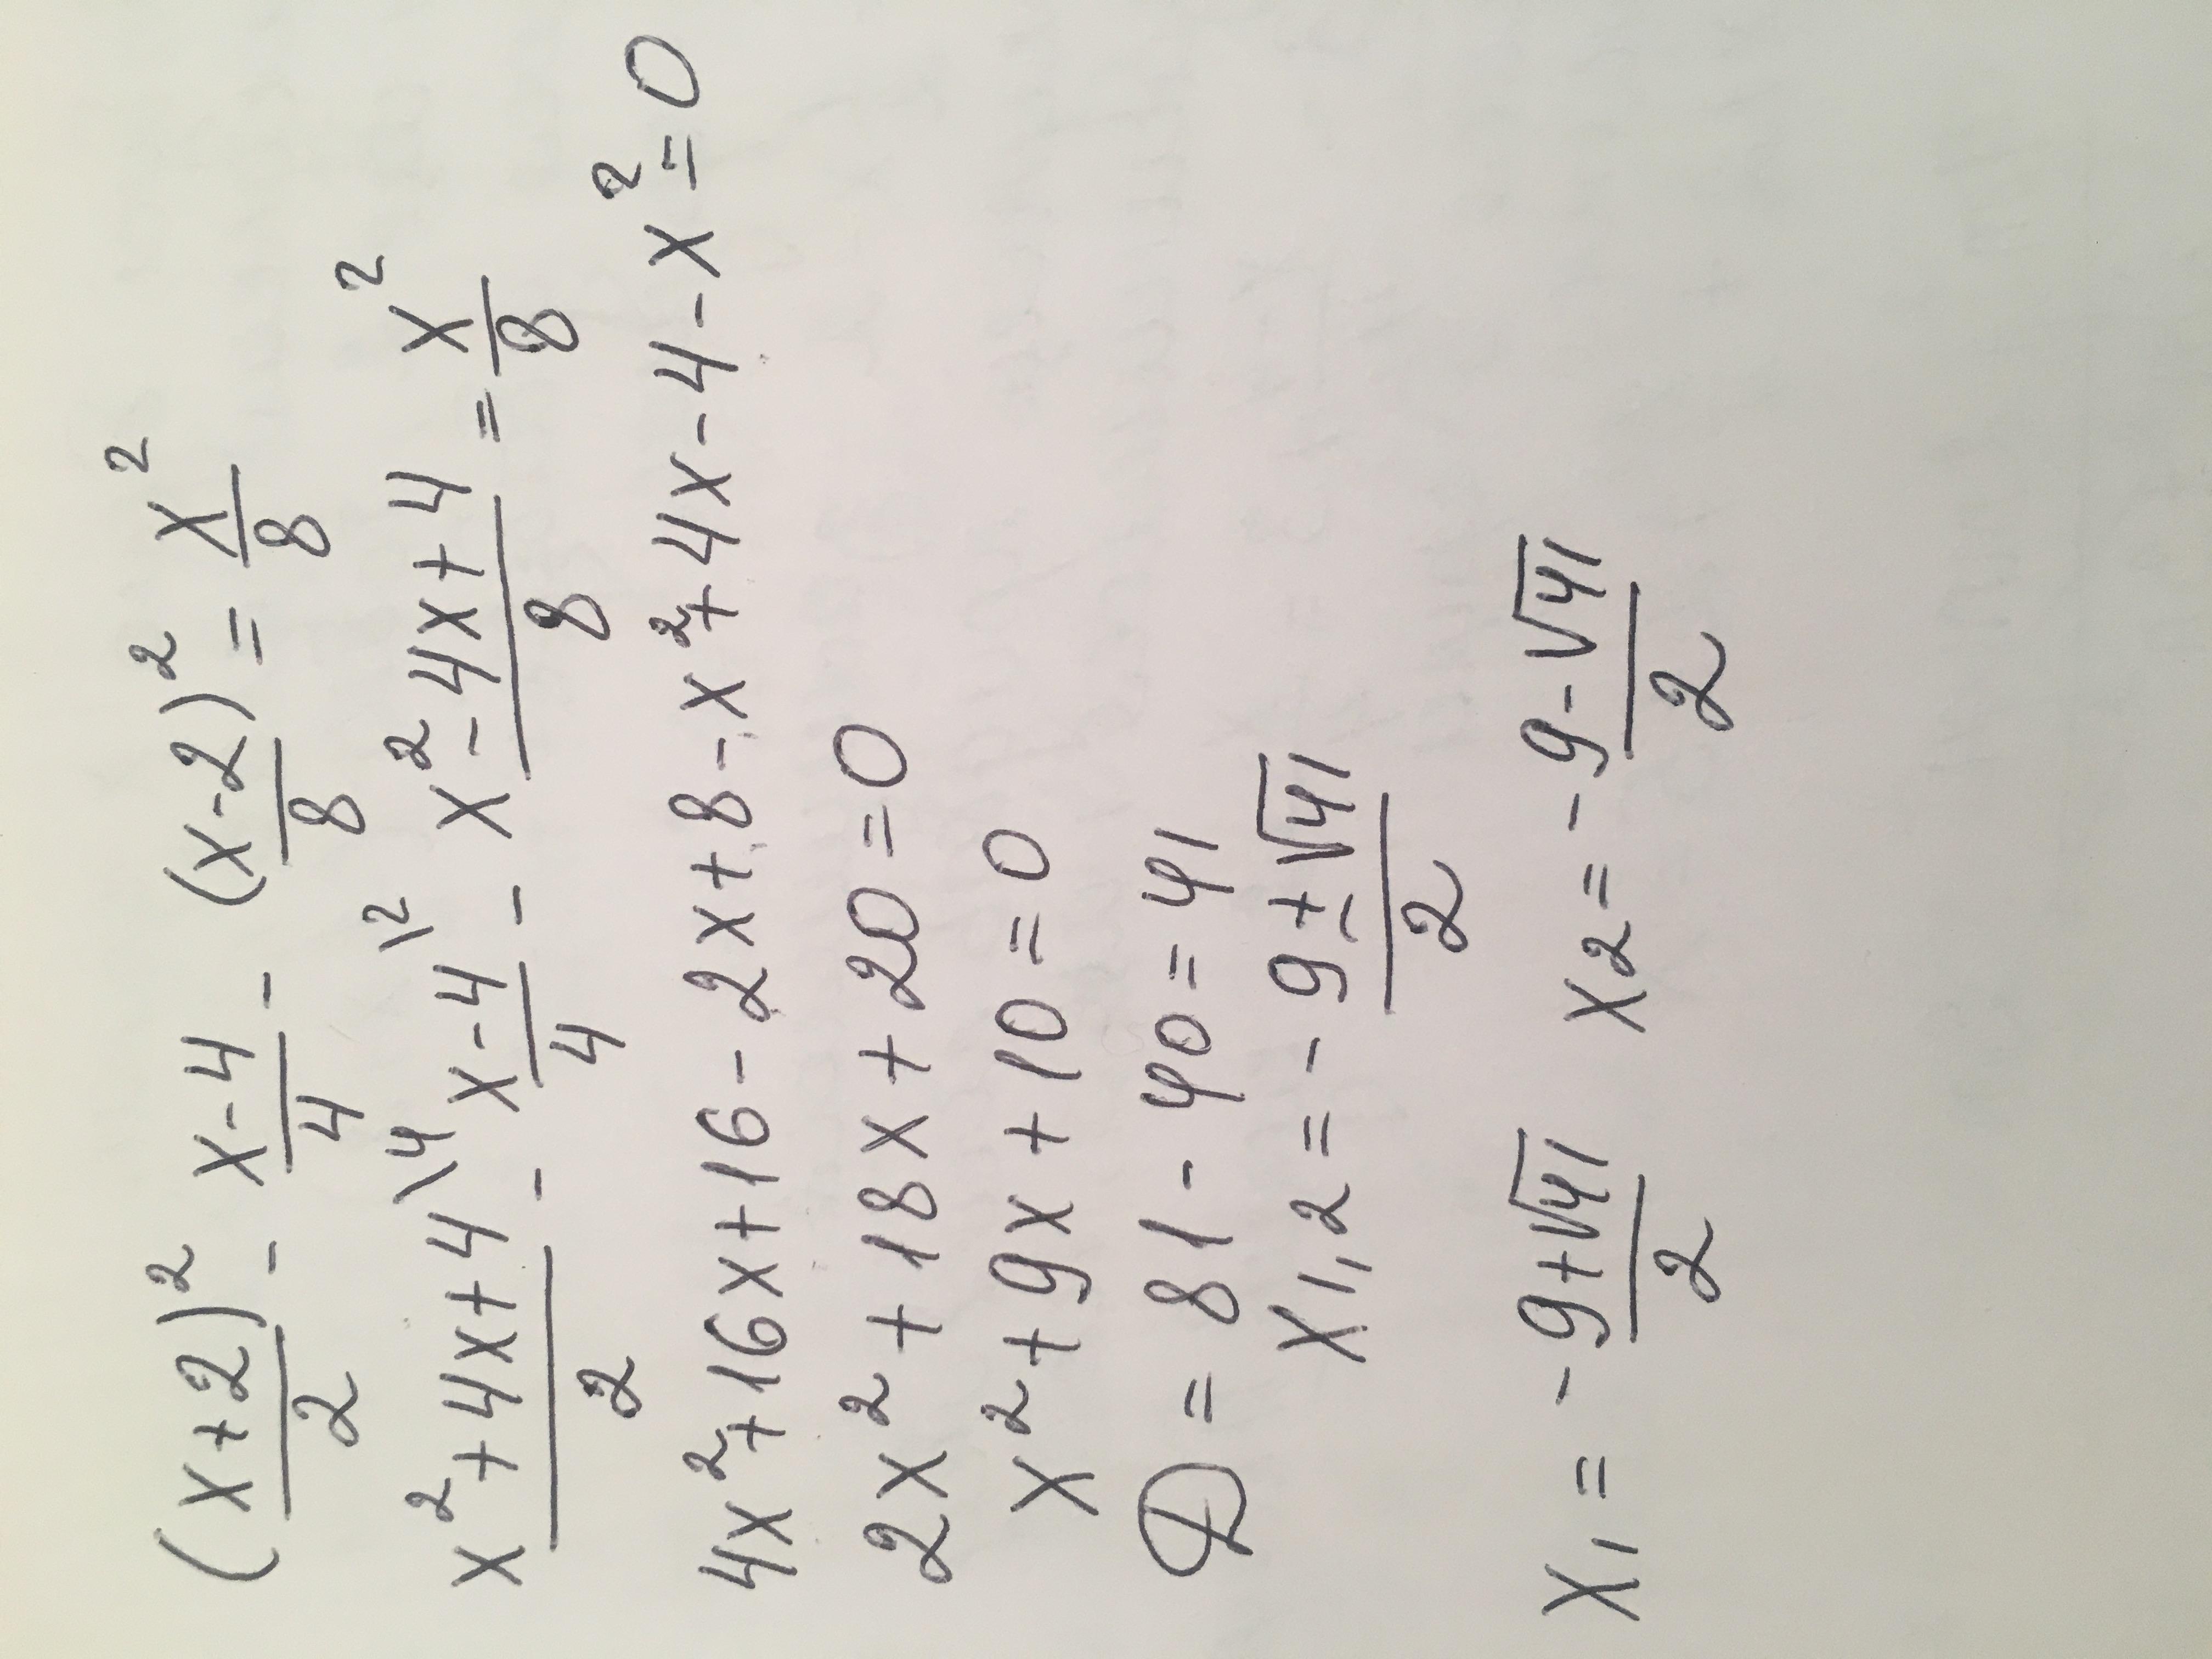 (x+2)²/2 - x-4/4 - (x-2)²/8 = x²/8
x²+4x+4\4/2 - x-4\2/4 - x²-4x+4/8 = x²/8
4x²+16x+16-2x+8-x²+4x-4-x²=0
2x²+18x+20=0
x²+9x+10=0
D=81-40=41
x1,2=-9±√41/2
x1=-9+√41/2 x2=-9-√41/2